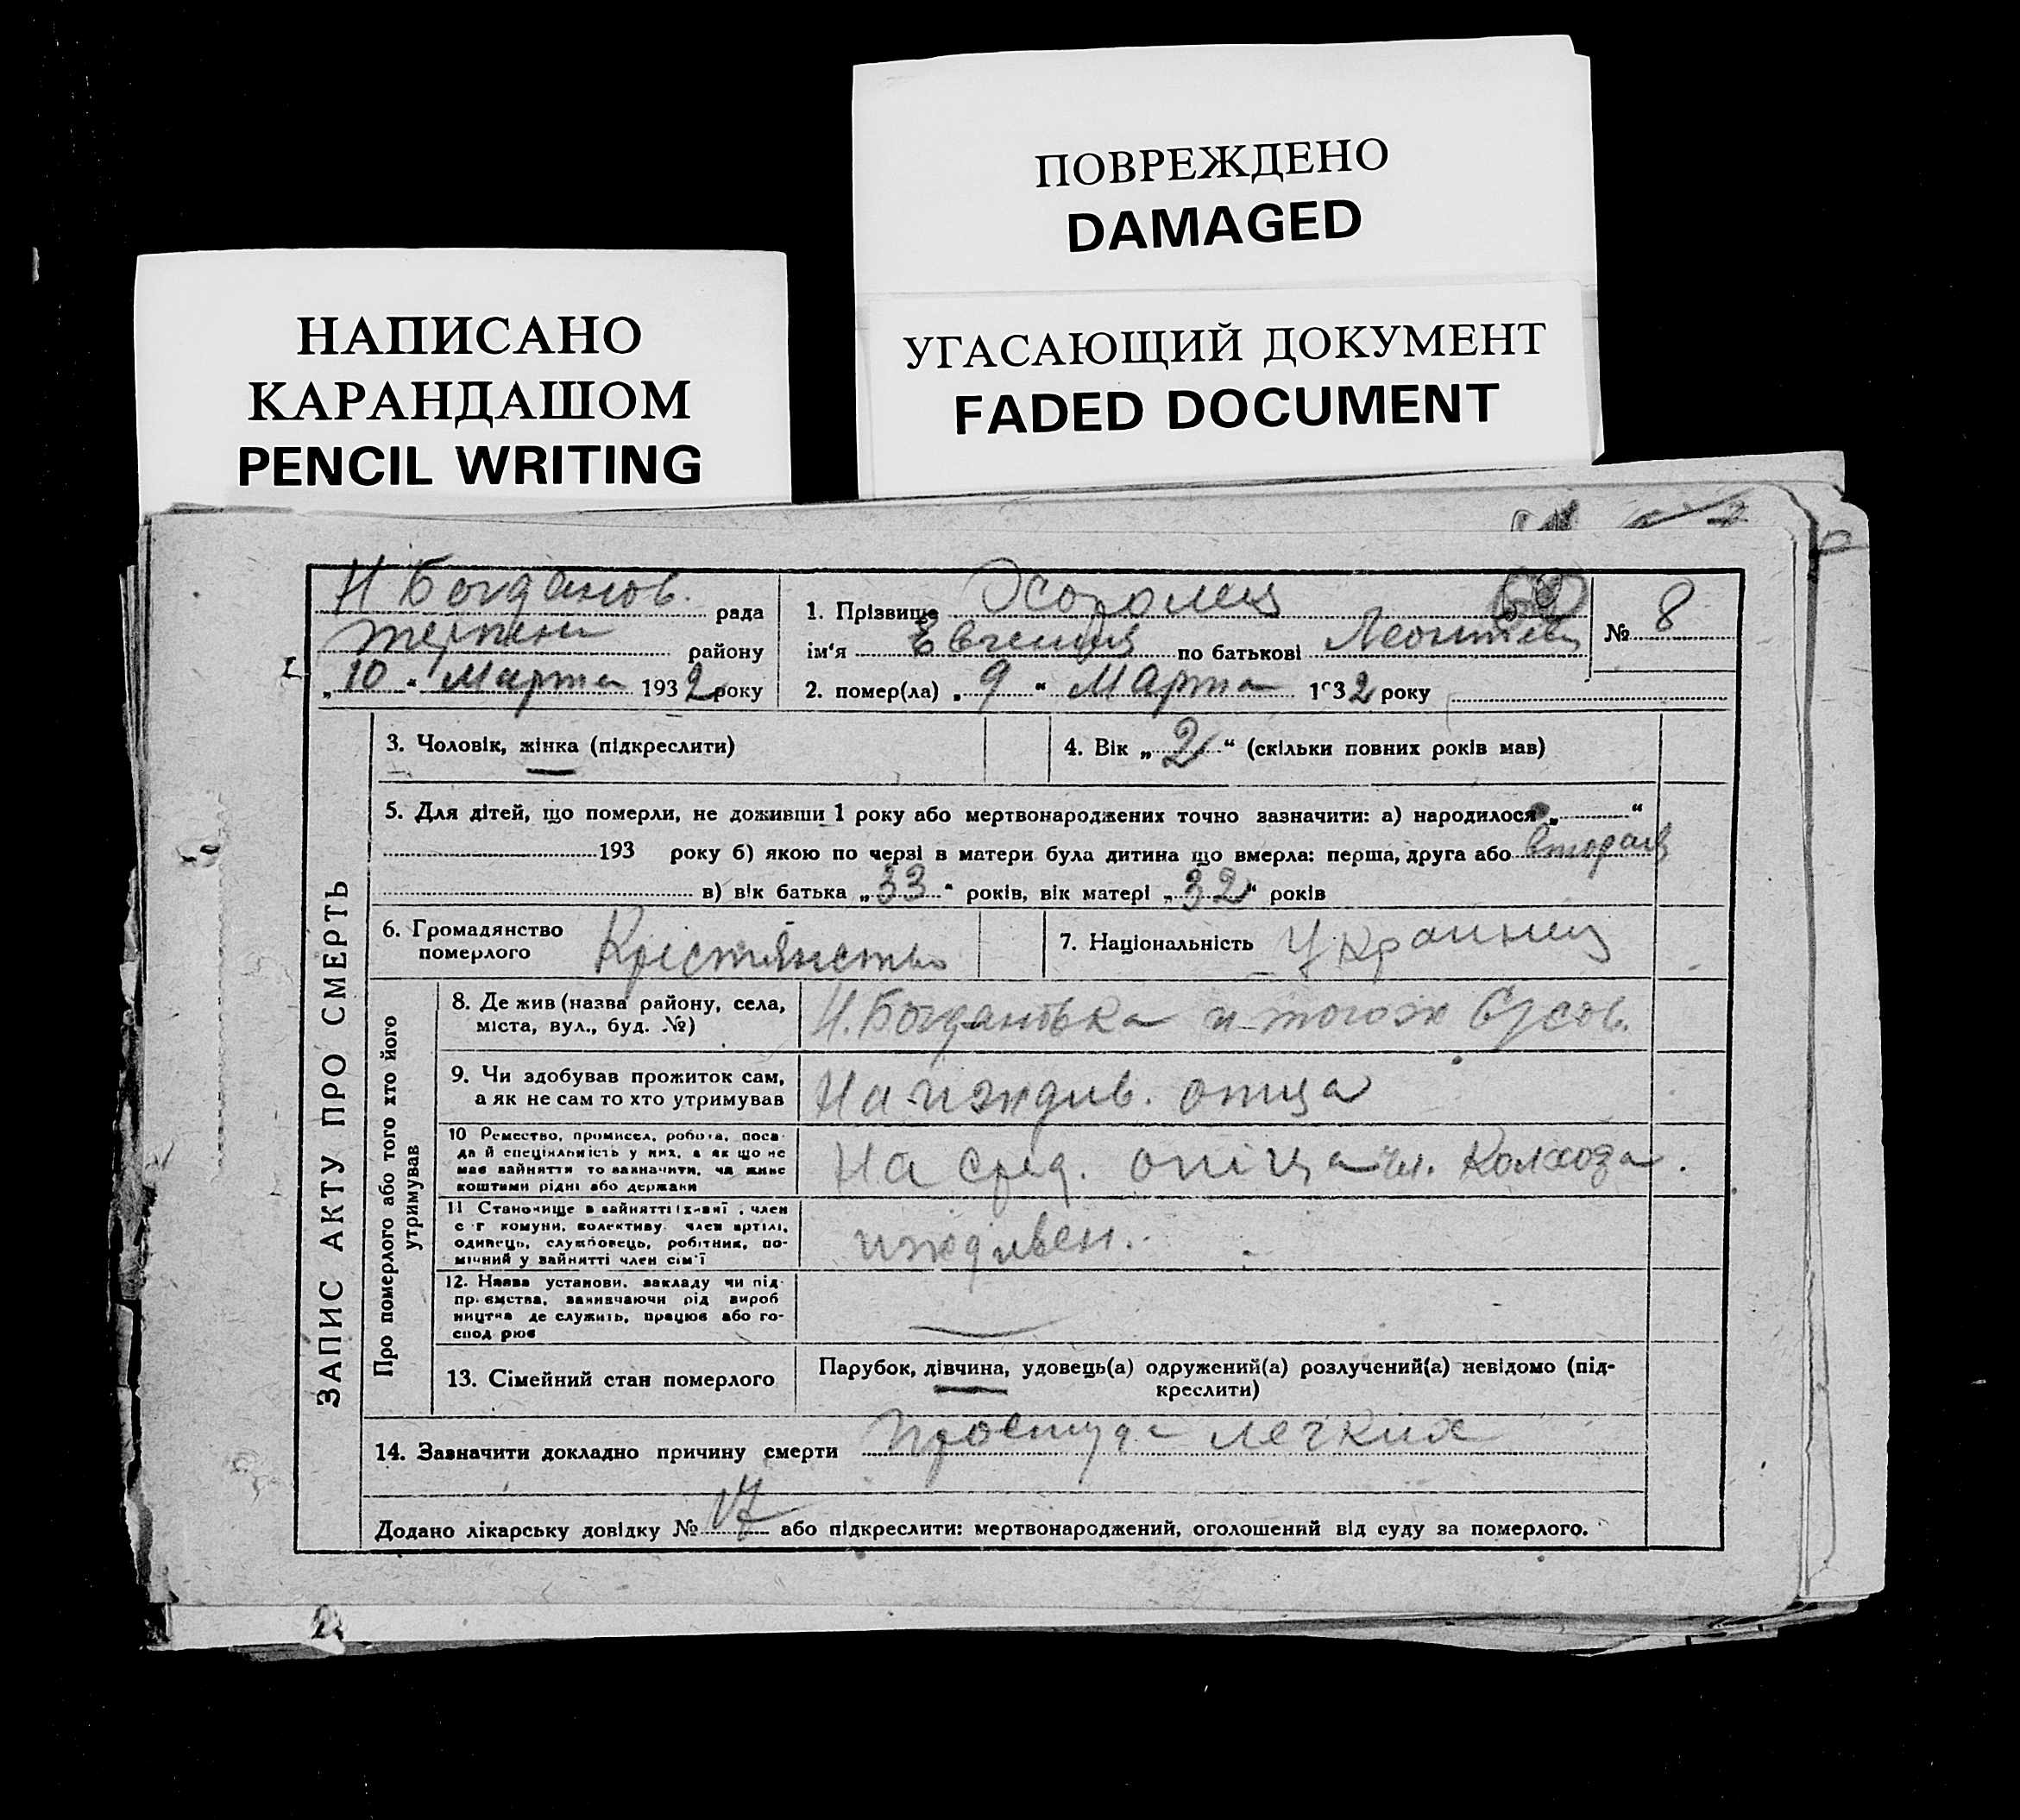 ПОВРЕЖДЕНО
DAMAGED
УГАСАЮЩИЙ ДОКУМЕНТ
FADED DOCUMENT
НАПИСАНО
КАРАНДАШОМ
PENCIL WRITING
Н Богданов. рада
району
„10“ Марта 1932 року
1. Прізвище
ім‘я Евгения по батькові Леонтиев
№ 8
2. помер(ла) „9“ Марта 1932 року
ЗАПИС АКТУ ПРО СМЕРТЬ
3. Чоловік, жінка (підкреслити)
4. Вік „2“ (скільки повних років мав)
5. Для дітей, що померли, не доживши 1 року або мертвонароджених точно зазначити: а) народилося „ “
193 року б) якою по черзі в матери була дитина що вмерла: перша, друга або вторая
в) вік батька „33“ років, вік матері „32“ років
6. Громадянство
померлого Крістянство
7. Національність Украинец
Про померлого або того хто його
утримував
8. Де жив (назва району, села,
міста, вул., буд. №)
Н. Богдановка и тогож
9. Чи здобував прожиток сам,
а як не сам то хто утримував
На иждив. отца
10 Ремество, промисел, робота, поса-
да й спеціяльність у них, а як що не
має вайняття то вазначити, чи живе
коштами рідні або держави
На сред. отца чл. Колхоза.
11 Становище в вайнятті , член
с г комуни, колективу, член артілі,
одинець, службовець, робітник, по-
мічний у вайнятті член сім‘ї
иждивен.
12. Назва установи, закладу чи під-
приємства, вазначаючи рід вироб
ництва де служить, працює або го-
спод рює
13. Сімейний стан померлого
Парубок, дівчина, удовець(а) одружений(а) розлучений(а) невідомо (під-
креслити)
14. Зазначити докладно причину смерти простуда легких
Додано лікарську довідку № або підкреслити: мертвонароджений, оголошений від суду за померлого.
2